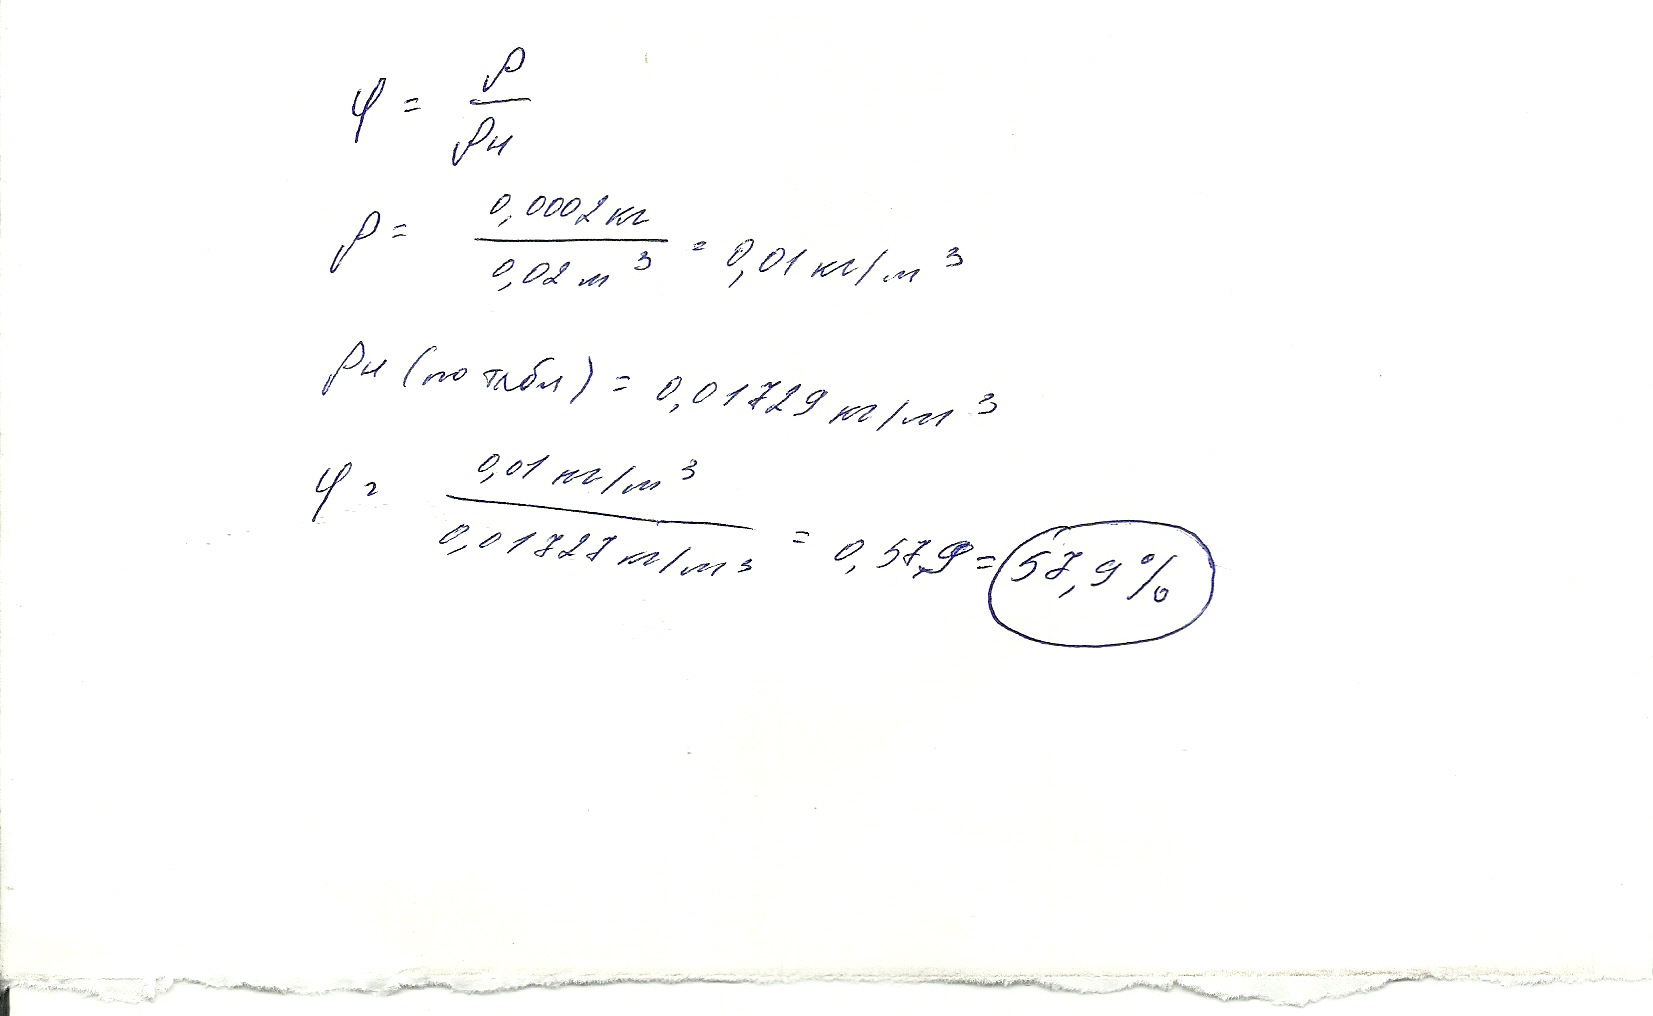 φ = ρ / ρн
ρ = 0,0002 кг / 0,02 м³ = 0,01 кг/м³
ρн (по табл) = 0,01729 кг/м³
φ = 0,01 кг/м³ / 0,01727 кг/м³ = 0,57,9 = 57,9 %